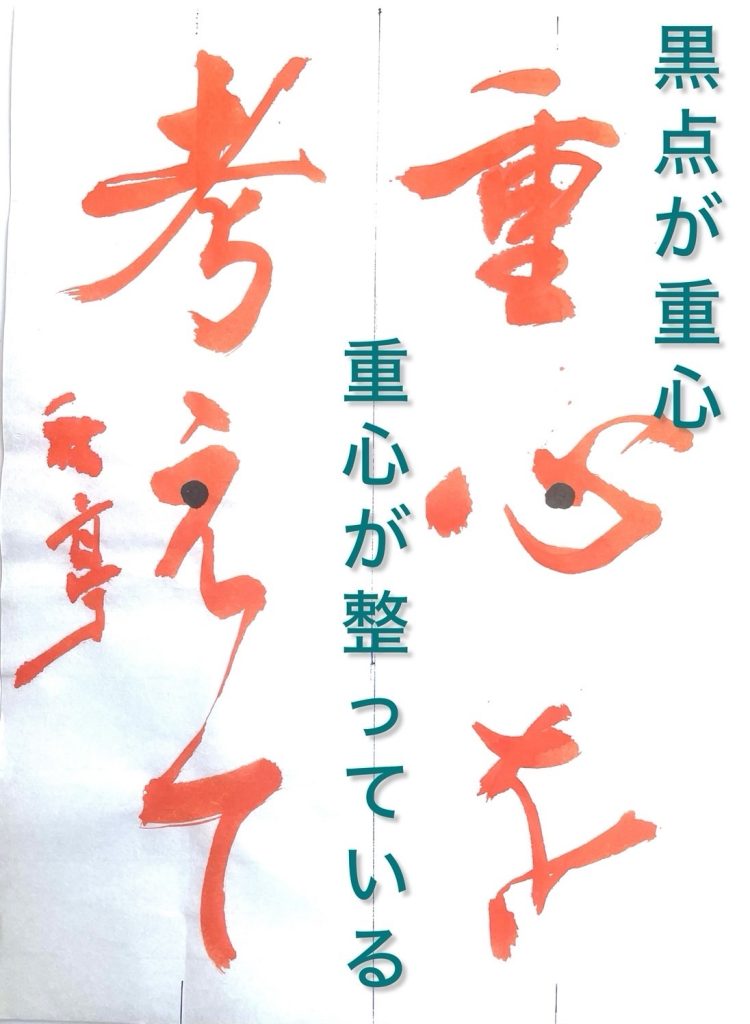 黒点が重心
重心を
重心が整っている
考えて